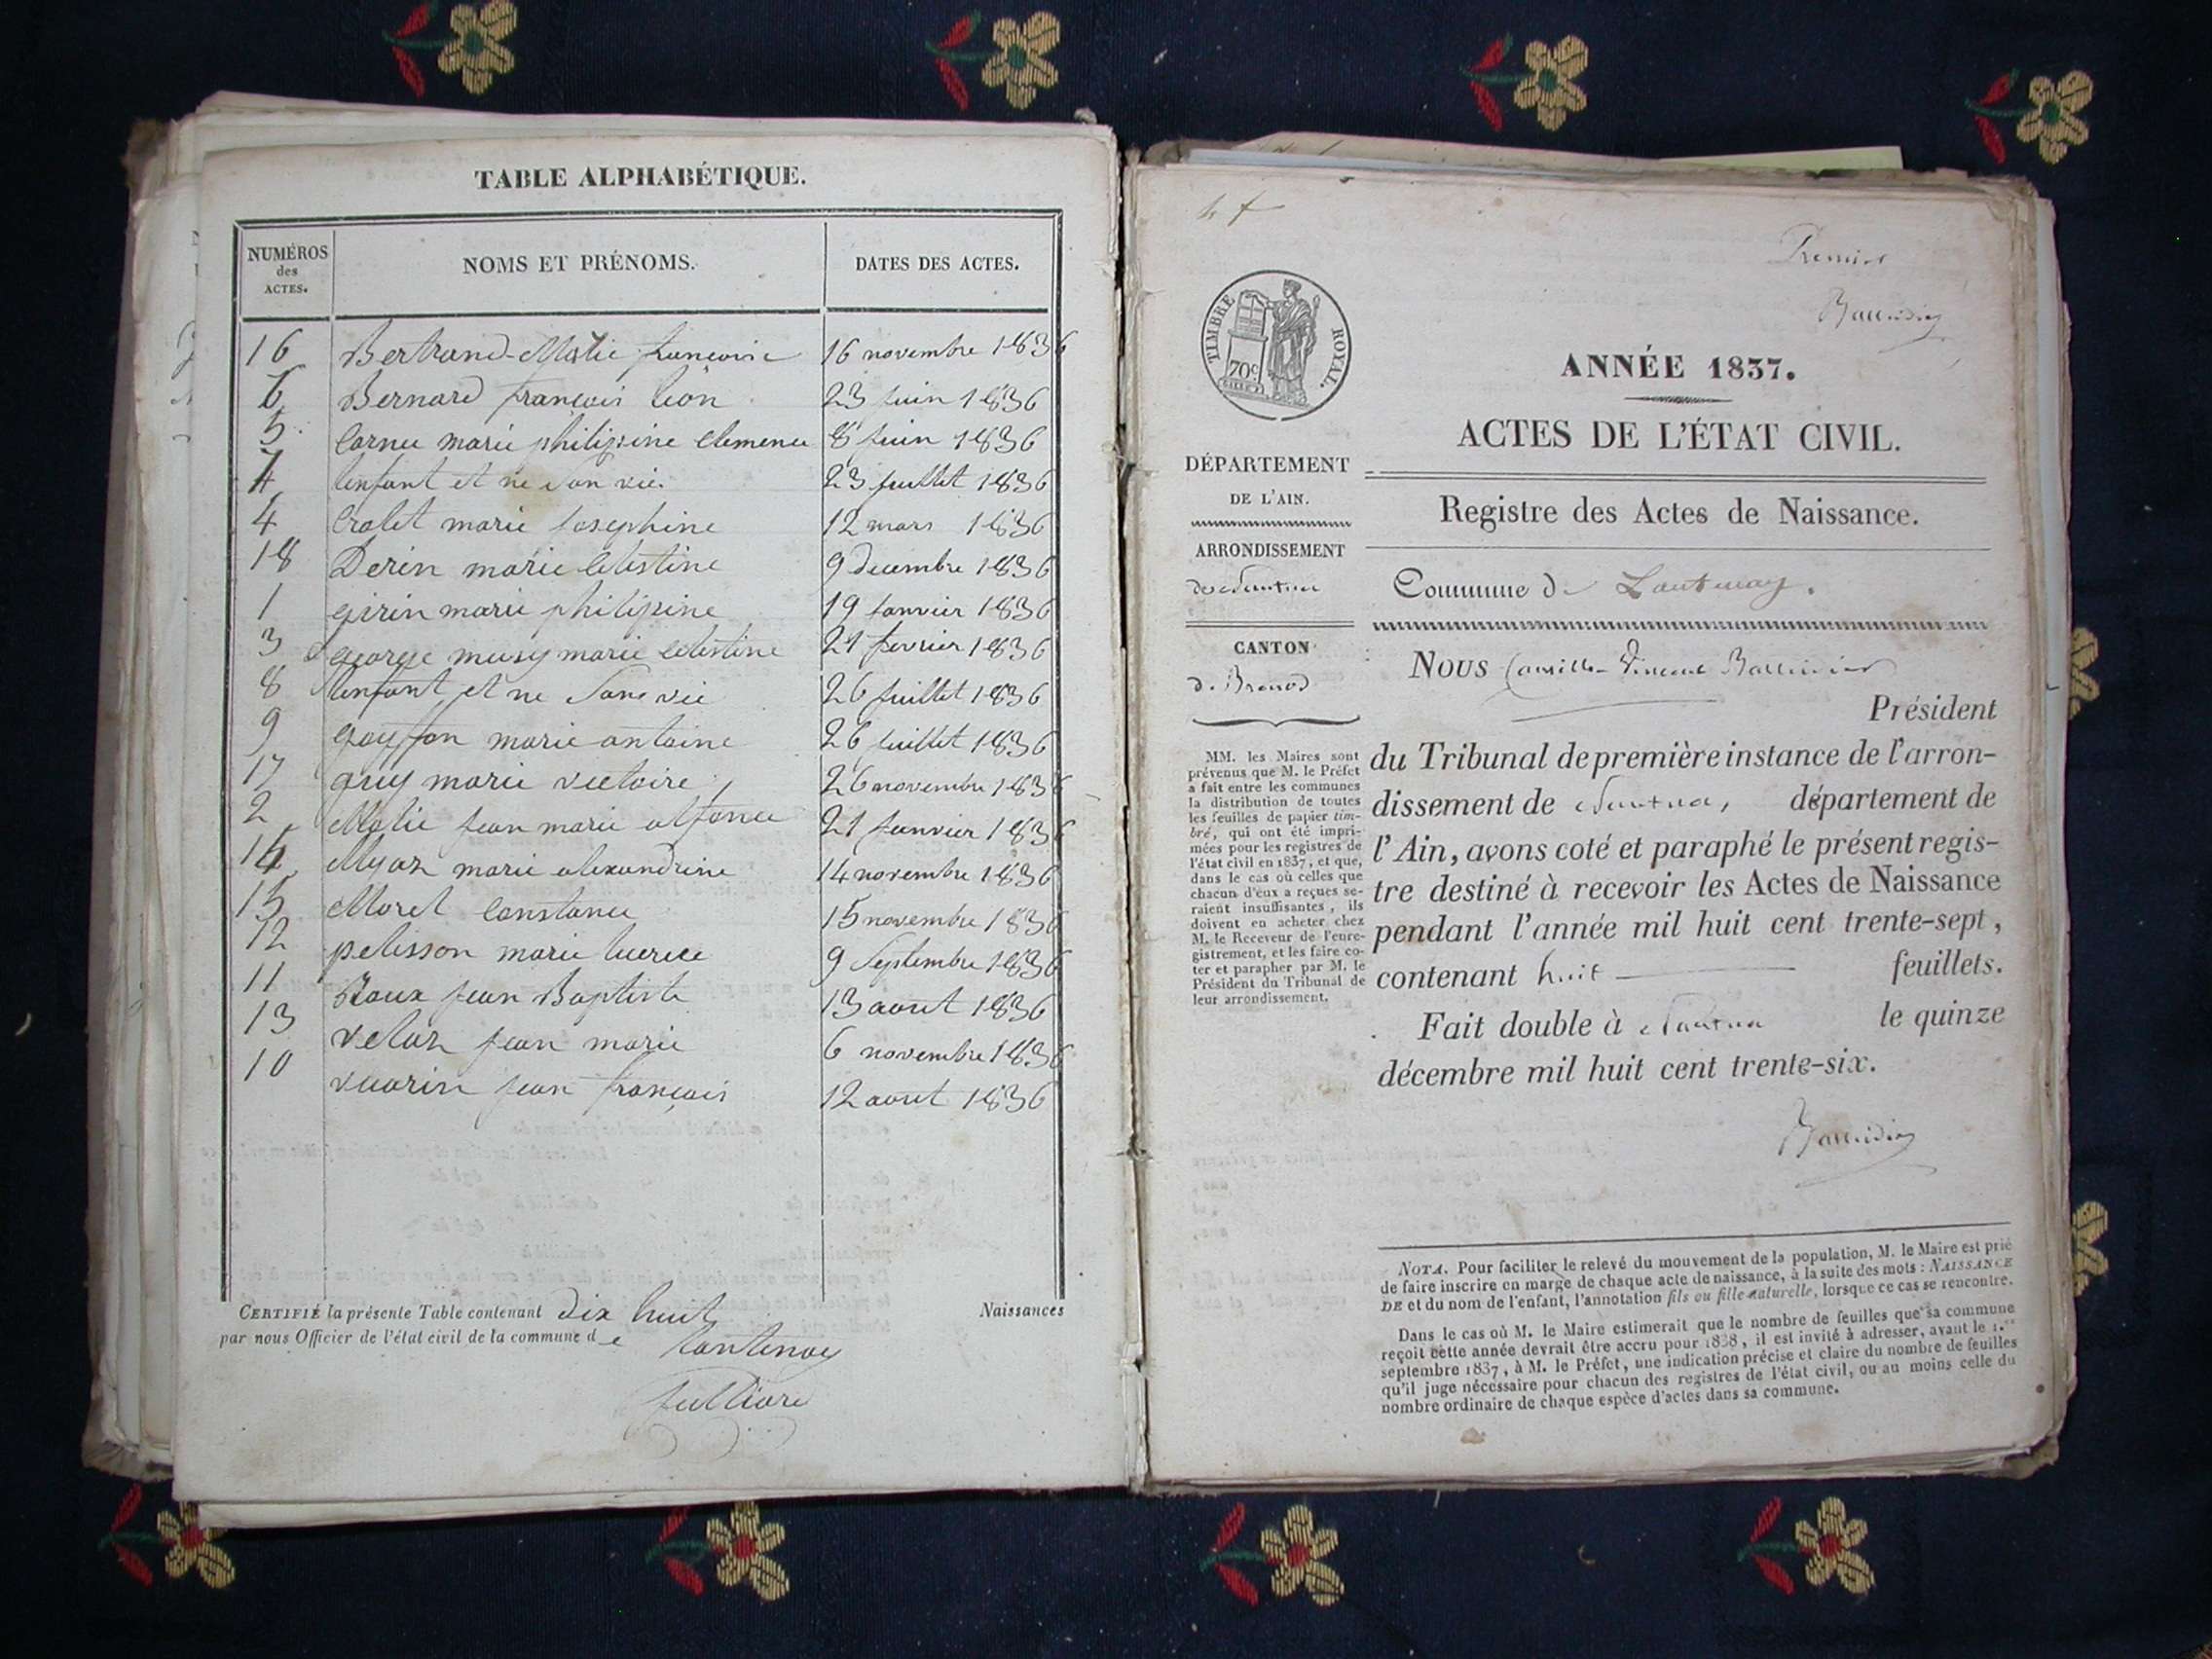 TABLE ALPHABÉTIQUE.
NUMÉROS des ACTES. NOMS ET PRÉNOMS. DATES DES ACTES.
16 Bertrand Marie françoise 16 novembre 1836
6 Bernard françois léon 23 juin 1836
5 Cornu marie philipine Clemence 8 juin 1836
7 lenfant et né San vie 23 juillet 1836
4 Crolet marie Josephine 12 mars 1836
18 Derin marie Celestine 9 decembre 1836
1 girin marie philipine 19 Janvier 1836
3 george musy marie Celestine 21 fevrier 1836
8 lenfant et ne Sans vie 26 Juillet 1836
9 goyffon marie antoine 26 Juillet 1836
17 guy marie victoire 26 novembre 1836
2 jean marie alfonce 21 Janvier 1836
14 marie alexandrine 14 novembre 1836
15 Morel Constance 15 novembre 1836
12 pelisson marie 9 Septembre 1836
11 Roux Jean Baptiste 13 aout 1836
13 Jean marie 6 novembre 1836
10 vuarin Jean françois 12 aout 1836
CERTIFIÉ la présente Table contenant Dix huit Naissances
par nous Officier de l'état civil de la commune de Lantenay
Julliard
Premier
TIMBRE ROYAL.
70c
ANNÉE 1837.
ACTES DE L'ÉTAT CIVIL.
DÉPARTEMENT
DE L'AIN.
Registre des Actes de Naissance.
ARRONDISSEMENT
de Nantua
Commune de Lantenay.
CANTON
de Brenod
Nous Camille Vincent
Président
du Tribunal de première instance de l'arron-
dissement de Nantua, département de
l'Ain, avons coté et paraphé le présent regis-
tre destiné à recevoir les Actes de Naissance
pendant l'année mil huit cent trente-sept,
contenant huit feuillets.
Fait double à Nantua le quinze
décembre mil huit cent trente-six.
MM. les Maires sont
prévenus que M. le Préfet
a fait entre les communes
la distribution de toutes
les feuilles de papier tim-
bré, qui ont été impri-
mées pour les registres de
l'état civil en 1837, et que,
dans le cas où celles que
chacun d'eux a reçues se-
raient insuffisantes, ils
doivent en acheter chez
M. le Receveur de l'enre-
gistrement, et les faire co-
ter et parapher par M. le
Président du Tribunal de
leur arrondissement.
NOTA. Pour faciliter le relevé du mouvement de la population, M. le Maire est prié
de faire inscrire en marge de chaque acte de naissance, à la suite des mots : NAISSANCE
DE et du nom de l'enfant, l'annotation fils ou fille naturelle, lorsque ce cas se rencontre.
Dans le cas où M. le Maire estimerait que le nombre de feuilles que sa commune
reçoit cette année devrait être accru pour 1838, il est invité à adresser, avant le 1.er
septembre 1837, à M. le Préfet, une indication précise et claire du nombre de feuilles
qu'il juge nécessaire pour chacun des registres de l'état civil, ou au moins celle du
nombre ordinaire de chaque espèce d'actes dans sa commune.